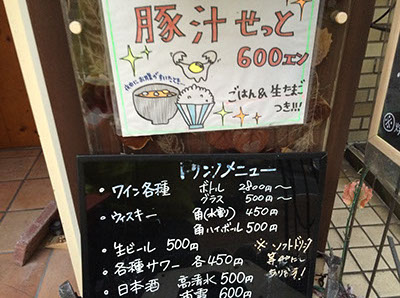 豚汁せっと
600エン
ごはん&生たまご
つき!!!
ドリンクメニュー
・ワイン各種 ボトル 2800円〜
グラス 500円〜
・ウィスキー 角(水割) 450円
角ハイボール 500円
・生ビール 500円
・各種サワー 各450円
・日本酒 高清水 500円
600円
※ソフトドリンク
あります!